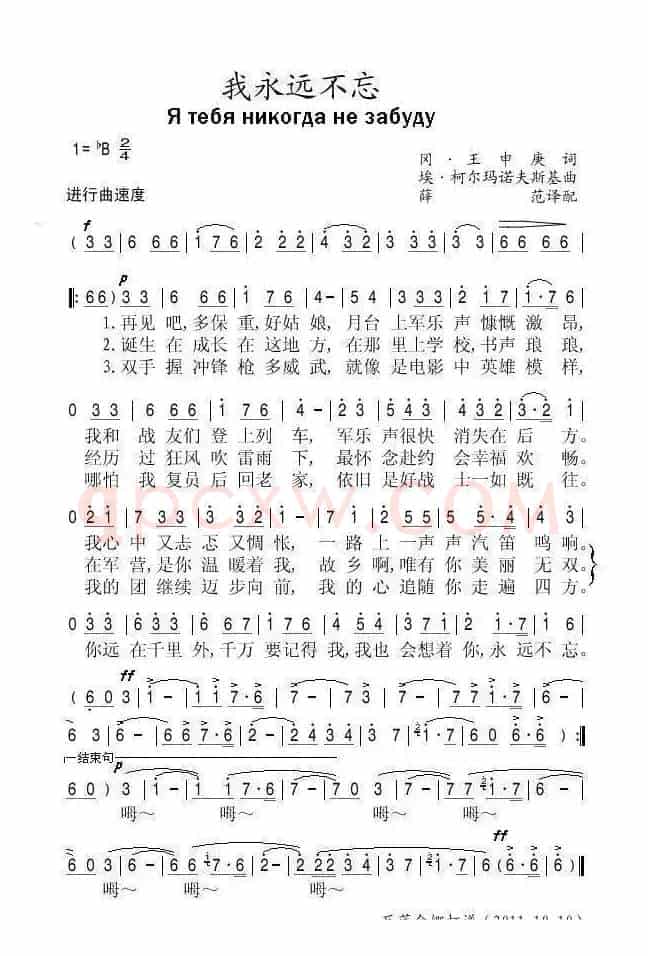 我永远不忘
Я тебя никогда не забуду
1= ♭B 2/4
冈·王申庚词
进行曲速度
埃·柯尔玛诺夫斯基曲
薛范译配
f
( 3 3 | 6 6 6 | 1 7 6 | 2 2 2 | 4 3 2 | 3 3 3 | 6 6 6 6 6
p
‖: 6 6 ) 3 3 | 6 6 6 | 1 7 6 | 4 - | 5 4 | 3 3 3 | 2 1 7 | 1·7 6
1.再见吧,多保重,好姑娘,月台上军乐声慷慨激昂,
2.诞生在成长在这地方,在那里上学校,书声琅琅,
3.双手握冲锋枪多威武,就像是电影中英雄模样,
0 3 3 | 6 6 6 | 1 7 6 | 4 - | 2 3 | 5 4 3 | 4 3 2 | 3·2 1
我和战友们登上列车,军乐声很快消失在后方。
经历过狂风吹雷雨下,最怀念赴约会幸福欢畅。
哪怕我复员后回老家,依旧是好战士一如既往。
0 2 1 | 7 3 3 | 3 2 1 | 7 - | 1 2 | 5 5 5 | 5 5·4 | 4 3
我心中又忐忑又惆怅,一路上一声声汽笛鸣响。
在军营,是你温暖着我,故乡啊,唯有你美丽无双。
我的团继续迈步向前,我的心追随你走遍四方。
0 3 3 | 6 3 3 | 6 3 3 | 2 4 | 0 2 2 | 5 4 3 | 2 1 7 | 1 6
你远在千里外,千万要记得我,我也会想着你,永远不忘。
ff
( 6 0 3 | 1 - | 1 1 1 7·6 | 7 - | 7 7 7 7 6 | 2 - | 2 2 2 1·7 |
6 3 | 6 - | 6 6 7·6 | 2 - | 2 4 3 4 | 3 7 | 2 1·7 | 6 0 ) :‖
结束句
p
6 0 ) 3 | 1 - | 1 1 7·6 | 7 - | 7 7·6 | 2 - | 2 1·7 | 6 -
呣～ 呣～ 呣～ 呣～
ff
6 0 3 | 6 - | 6 6 7·6 | 2 - | 2 2 2 3 4 | 3 7 | 2 1·7 | 6 6 | 6 0 ‖
呣～ 呣～ 呣～
qpcxw.com